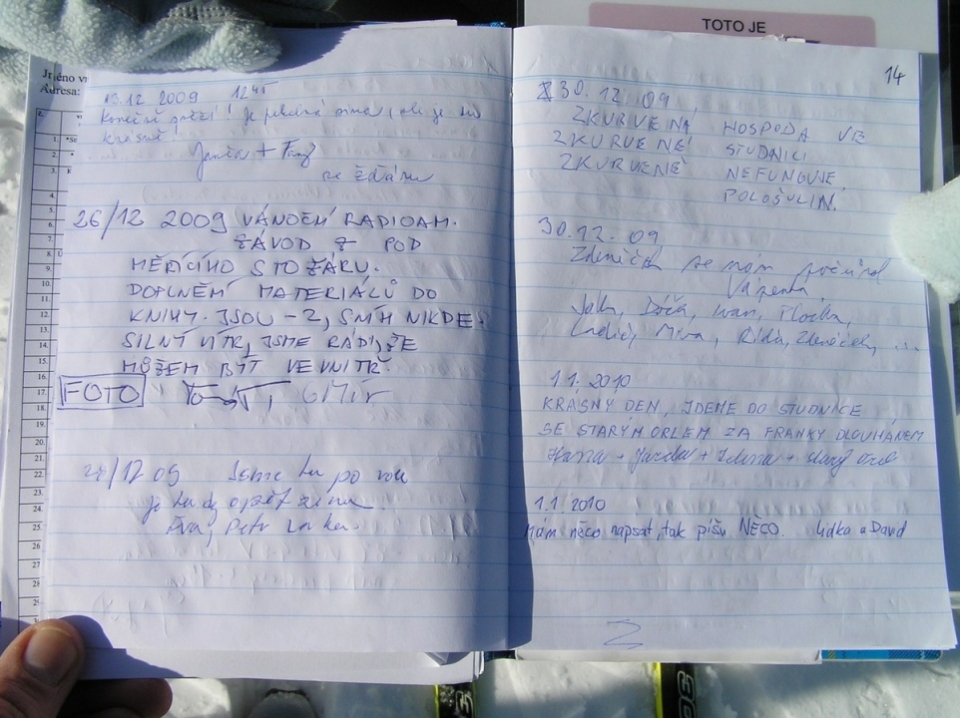 Adresa:
19.12.2009 12 45
Konečně sněží! Je pěkná zima, ale je to
krásné!
Janča +
ze Žďáru
26/12 2009 VÁNOČNÍ RADIOAM.
ZÁVOD Z POD
MĚŘÍCÍHO STOŽÁRU.
DOPLNĚNÍ MATERIÁLŮ DO
KNIHY. JSOU -2, SNÍH NIKDE,
SILNÝ VÍTR, JSME RÁDI, ŽE
MŮŽEM BÝT VEVNITŘ.
FOTO
28/12 09 Jsme tu po roce
je tady opět zima
Eva, Petr
TOTO JE
14
30.12.09
ZKURVENÁ HOSPODA VE
ZKURVENÉ STUDNICI
ZKURVENĚ NEFUNGUJE.
POLOŠULIN.
30.12.09
Zdeniček se nám počůral
Vápenka
Jolka, Dáša, Ivan, Vločka,
Luděk, Mirva, Rída, Zdeniček, ...
1.1.2010
KRÁSNÝ DEN, JDEME DO STUDNICE
SE STARÝM ORLEM ZA FRANKY DLOUHÁNEM
Hana + Jarda + Helena + starý orel
1.1.2010
Mám něco napsat, tak píšu NĚCO. Lidka a David